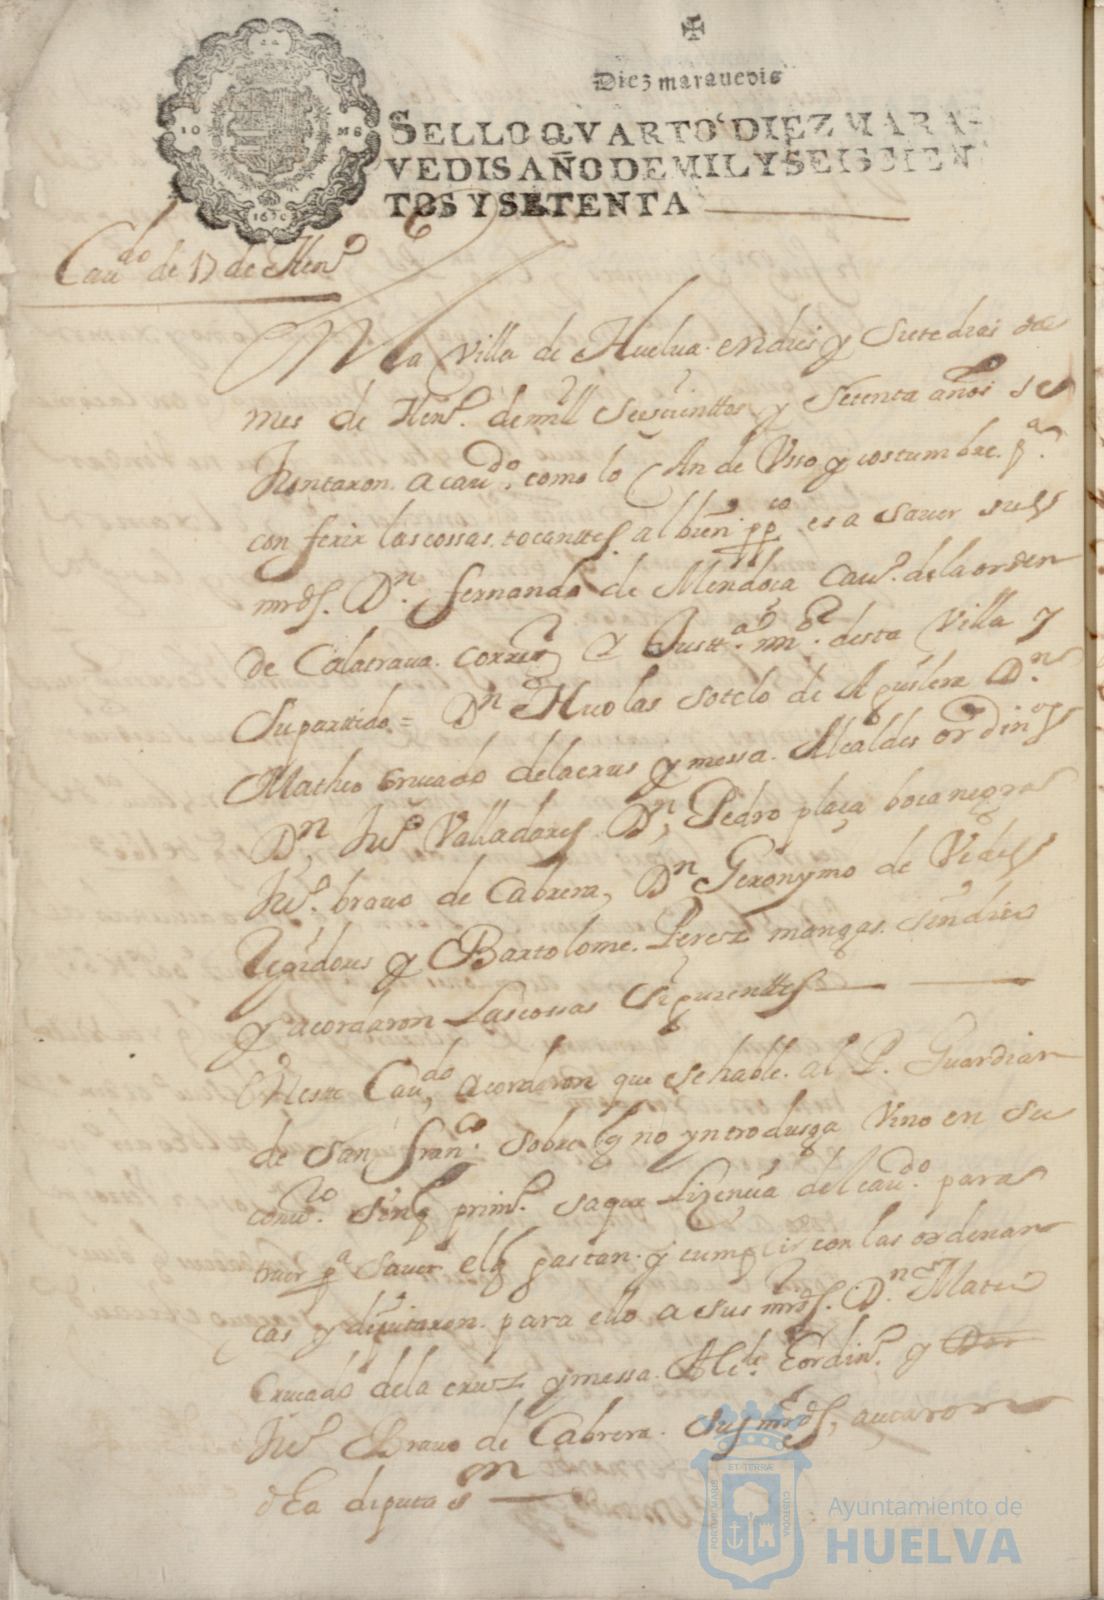 Diez marauedis
SELLO QVARTO DIEZ MARA-
VEDIS AÑO DE MIL Y SEISCIEN
TOS Y SETENTA
1670
Cauᵈᵒ de 17 de Henº
En la Villa de Huelua en dies y siete dias del
mes de Henº. de mill seiscienttos y setenta años se
Juntaron a cauᵈᵒ. como lo An de Vsso y costumbre. pª.
conferir las cossas tocanttes al bien ppᶜᵒ es a sauer sus
mrds. Dⁿ. fernando de Mendoça Cauº. de la orden
de Calatraua. corregᵒʳ y Justtª. mʳ. desta Villa y
su partido = Dⁿ Nicolas sotelo de Aguilera Dⁿ
Matheo crucado dela crus y messa. Alcaldes ordinºs
Dⁿ, Juº Valladares Dⁿ, Pedro plaça bocanegra
Juº. brauo de Cabrera, Dⁿ Geronymo de Vides
Regidores y Bartolome. Perez mangas. sindico
y acordaron Las cossas siguienttes
En este Cauᵈᵒ, acordaron que se hable. al P. Guardian
de san franᶜᵒ. sobre q no yntrodusga Vino en su
conuᵗᵒ. sin q primº. saque Lizencia del cauᵈᵒ. para
traer pª sauer el q gastan. y cumplir con las ordenan
cas y diputaron. para ello a sus mrds. Dⁿ Mateo
Crucado dela cruz y messa. Alᶜᵈᵉ. ordinº. y
Juº Brauo de Cabrera. sus mrds, acetaron
la diputaⁿ
PORTUS MARIS ET TERRÆ CUSTODIA
Ayuntamiento de
HUELVA